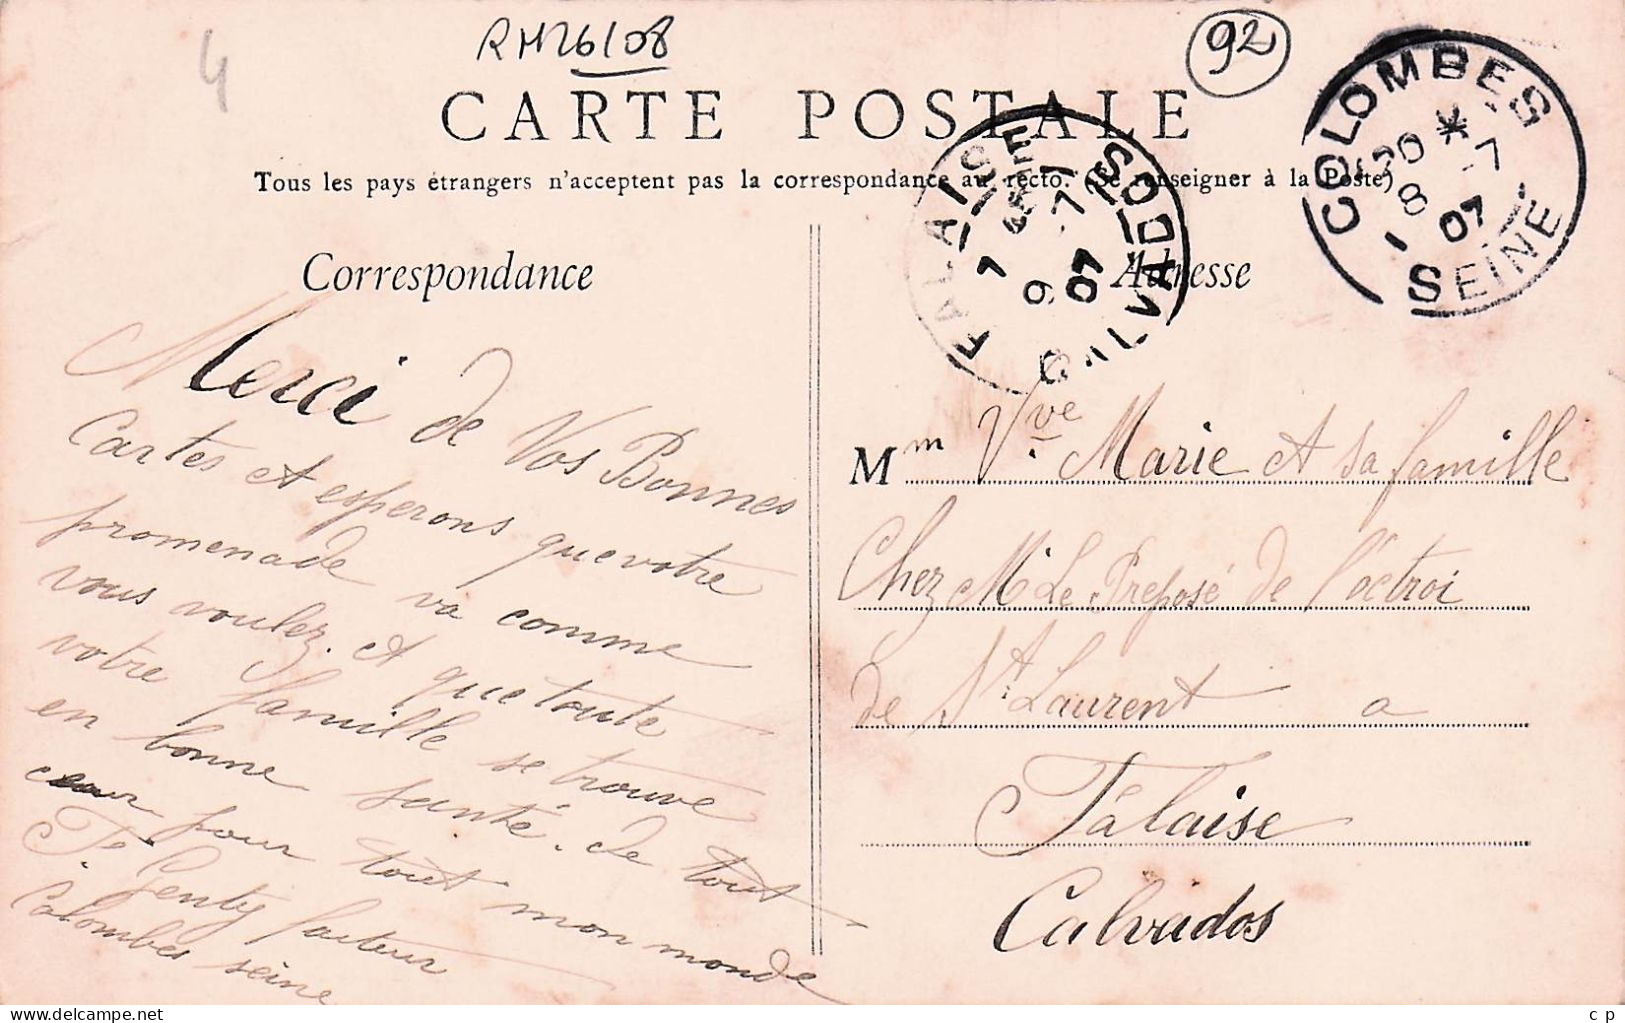 4
RM26/08
92
CARTE POSTALE
Tous les pays étrangers n'acceptent pas la correspondance au recto. (Se renseigner à la Poste)
COLOMBES
20 *
8 -7
07
SEINE
FALAISE
7 1
9 -7
07
CALVADOS
Correspondance
Adresse
Merci de Vos Bonnes
Cartes et esperons que votre
promenade va comme
vous voulez. et que toute
votre famille se trouve
en bonne santé. de tout
cœur pour tout mon monde
Genty facteur
Colombes seine
Mm Vve Marie et sa famille
Chez M Le Preposé de l'octroi
de St Laurent a
Falaise
Calvados
© c p
delcampe.net